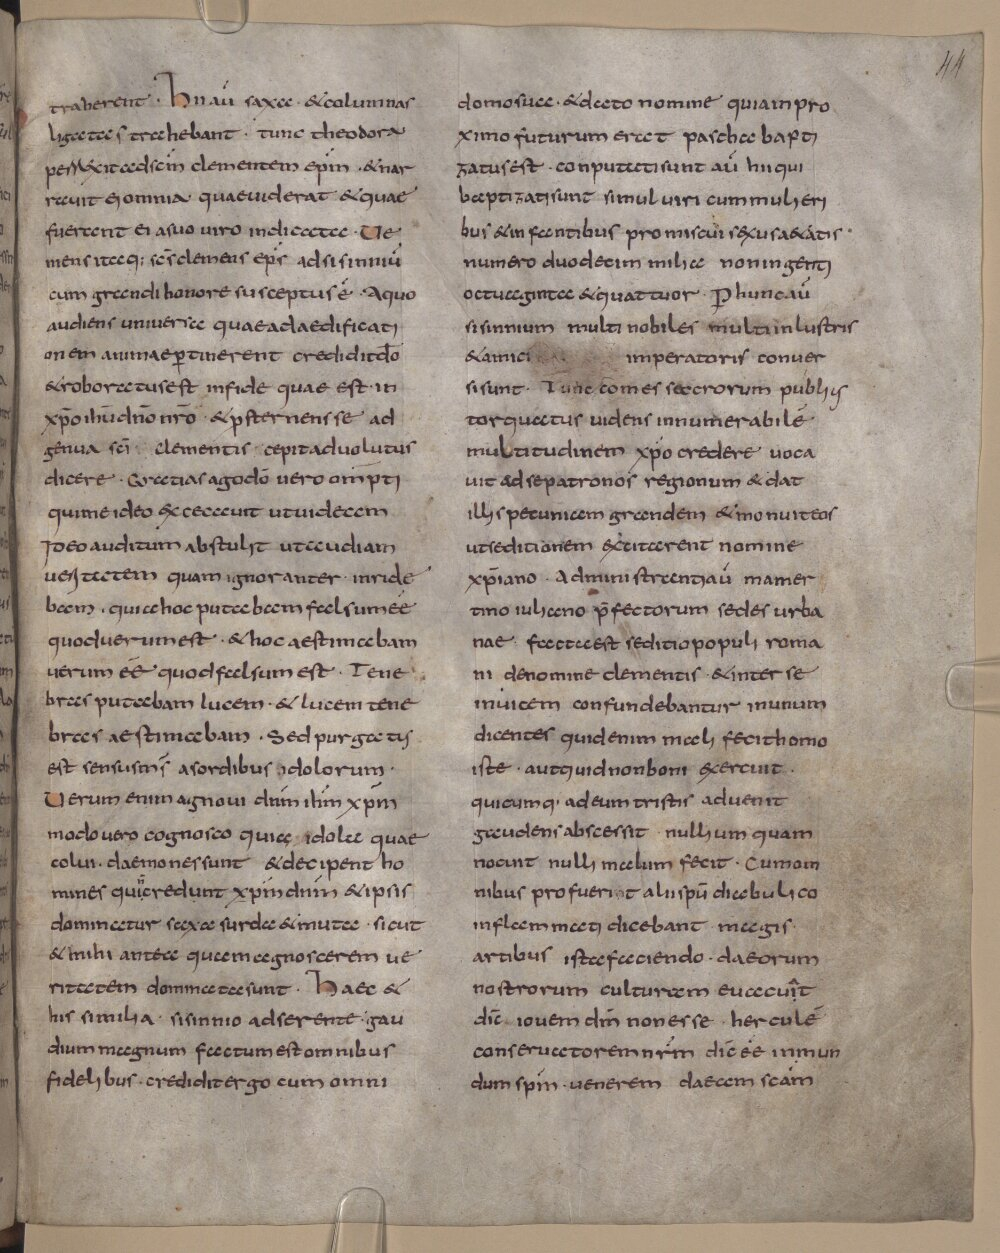 44
traherent · hii au saxa · & columnas
ligatas trahebant · tunc theodora
ad scm clementem epm · & nar
rauit ei omnia quae uiderat & quae
fuerant ei a suo uiro indicata · Ue
niens itaq; scs clemens eps ad sisinniu
cum grandi honore susceptus e · A quo
audiens uniuersa quae ad aedificati
onem animae ptinerent credidit do
& roboratus est in fide quae est in
xpo ihu dno nro · & psternens se ad
genua sci clementis cepit aduolutus
dicere · Gratias ago do uero omipti
qui me ideo excecauit ut uiderem
Ideo auditum abstulit ut audiam
ueritatem quam ignoranter inride
bam · quia hoc putabam falsum ee
quod uerum est · & hoc aestimabam
uerum ee quod falsum est · Tene
bras putabam lucem · & lucem tene
bras aestimabam · Sed purgatus
est sensus ms a sordibus idolorum ·
Uerum enim agnoui dnm ihm xpm
modo uero cognosco quia idola quae
colui · daemones sunt & decipent ho
mines qui n credunt xpm dnm & ipsis
dominatur saxa surda & muta · sicut
& mihi antea quam agnoscerem ue
ritatem dominata sunt · Haec &
his similia · sisinnio adserente · gau
dium magnum factum est omnibus
fidelibus · credidit ergo cum omni
domo sua · & dato nomine quia in pro
ximo futurum erat pascha bapti
zatus est · conputati sunt au hii qui
baptizati sunt simul uiri cum mulieri
bus & infantibus promiscui sexus a&atis ·
numero duodecim milia noningenti
octuaginta & quattuor · P hunc au
sisinnium multi nobiles multi inlustris
& amici imperatoris conuer
si sunt · Tunc comes sacrorum publiis
torquatus uidens innumerabile
multitudinem xpo credere uoca
uit ad se patronos regionum & dat
illis petuniam grandem & monuit eos
ut seditionem excitarent nomine
xpiano · Administranti au mamer
tino iuliano pfectorum sedes urba
nae · facta est seditio populi roma
ni de nomine clementis · & inter se
inuicem confundebantur in unum
dicentes quid enim mali fecit homo
iste · aut quid non boni exercuit ·
quicumq; ad eum tristis aduenit
gaudens abscessit nullum quam
nocuit nulli malum fecit · Cum om
nibus profuerit alii spu diabulico
inflammati dicebant · magis
artibus ista faciendo · daeorum
nostrorum culturam euacuat
dic iouem dm non esse · hercule
conseruatorem nrm dic ee inmun
dum spm · uenerem daeam scam